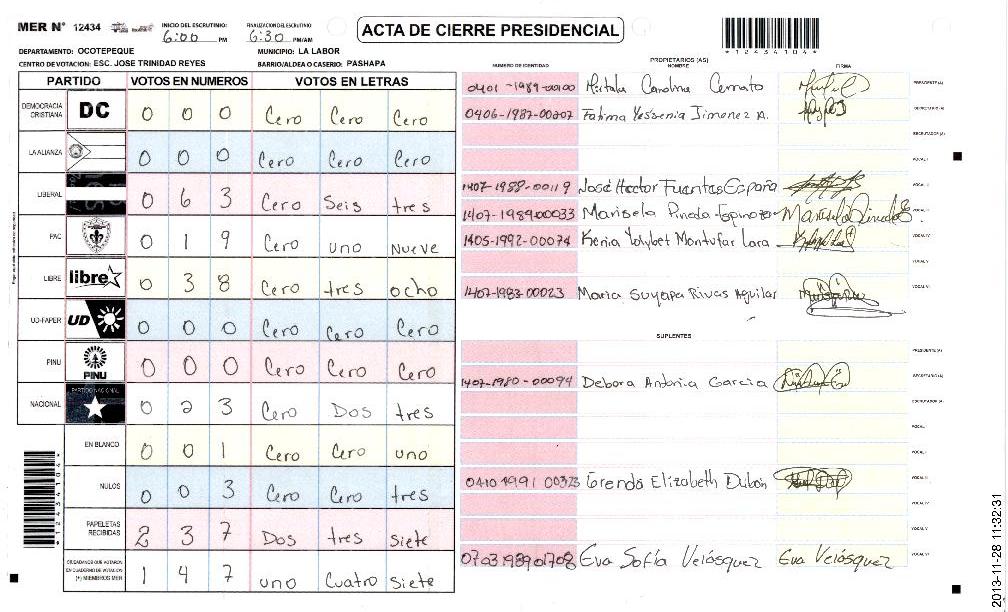 MER N° 12434
INICIO DEL ESCRUTINIO 6:00 PM
FINALIZACION DEL ESCRUTINIO 6:30 PM/AM
ACTA DE CIERRE PRESIDENCIAL
*12434104*
DEPARTAMENTO: OCOTEPEQUE MUNICIPIO: LA LABOR
CENTRO DE VOTACION: ESC. JOSE TRINIDAD REYES BARRIO/ALDEA O CASERIO: PASHAPA
PARTIDO VOTOS EN NUMEROS VOTOS EN LETRAS
DEMOCRACIA CRISTIANA DC 0 0 0 Cero Cero Cero
LA ALIANZA 0 0 0 Cero Cero Cero
LIBERAL 0 6 3 Cero Seis tres
PAC 0 1 9 Cero uno Nueve
LIBRE libre 0 3 8 Cero tres ocho
UD-FAPER UD 0 0 0 Cero Cero Cero
PINU PINU 0 0 0 Cero Cero Cero
NACIONAL PARTIDO NACIONAL 0 2 3 Cero Dos tres
EN BLANCO 0 0 1 Cero Cero uno
NULOS 0 0 3 Cero Cero tres
PAPELETAS RECIBIDAS 2 3 7 Dos tres siete
CIUDADANOS QUE VOTARON EN CUADERNO DE VOTACION (+) MIEMBROS MER 1 4 7 uno Cuatro siete
*12434104*
PROPIETARIOS (AS)
NUMERO DE IDENTIDAD NOMBRE FIRMA
0401-1989-00100 Carolina Cerrato PRESIDENTE (A)
0406-1987-00207 Fatima Yessenia Jimenez A. SECRETARIO (A)
ESCRUTADOR (A)
VOCAL I
1407-1988-00119 José Hector Fuentes España VOCAL II
1407-1989-00033 Marisela Pineda Espinoza VOCAL III
1405-1992-00074 Kenia Yolybet Montufar Lara VOCAL IV
VOCAL V
1407-1983-00023 Maria Suyapa Rivas Aguilar VOCAL VI
SUPLENTES
PRESIDENTE (A)
1407-1980-00094 Debora Garcia SECRETARIO (A)
ESCRUTADOR (A)
VOCAL I
VOCAL II
0410 1991 00323 Elizabeth Dubón VOCAL III
VOCAL IV
VOCAL V
0703198901708 Eva Sofía Velásquez Eva Velásquez VOCAL VI
2013-11-28 11:32:31